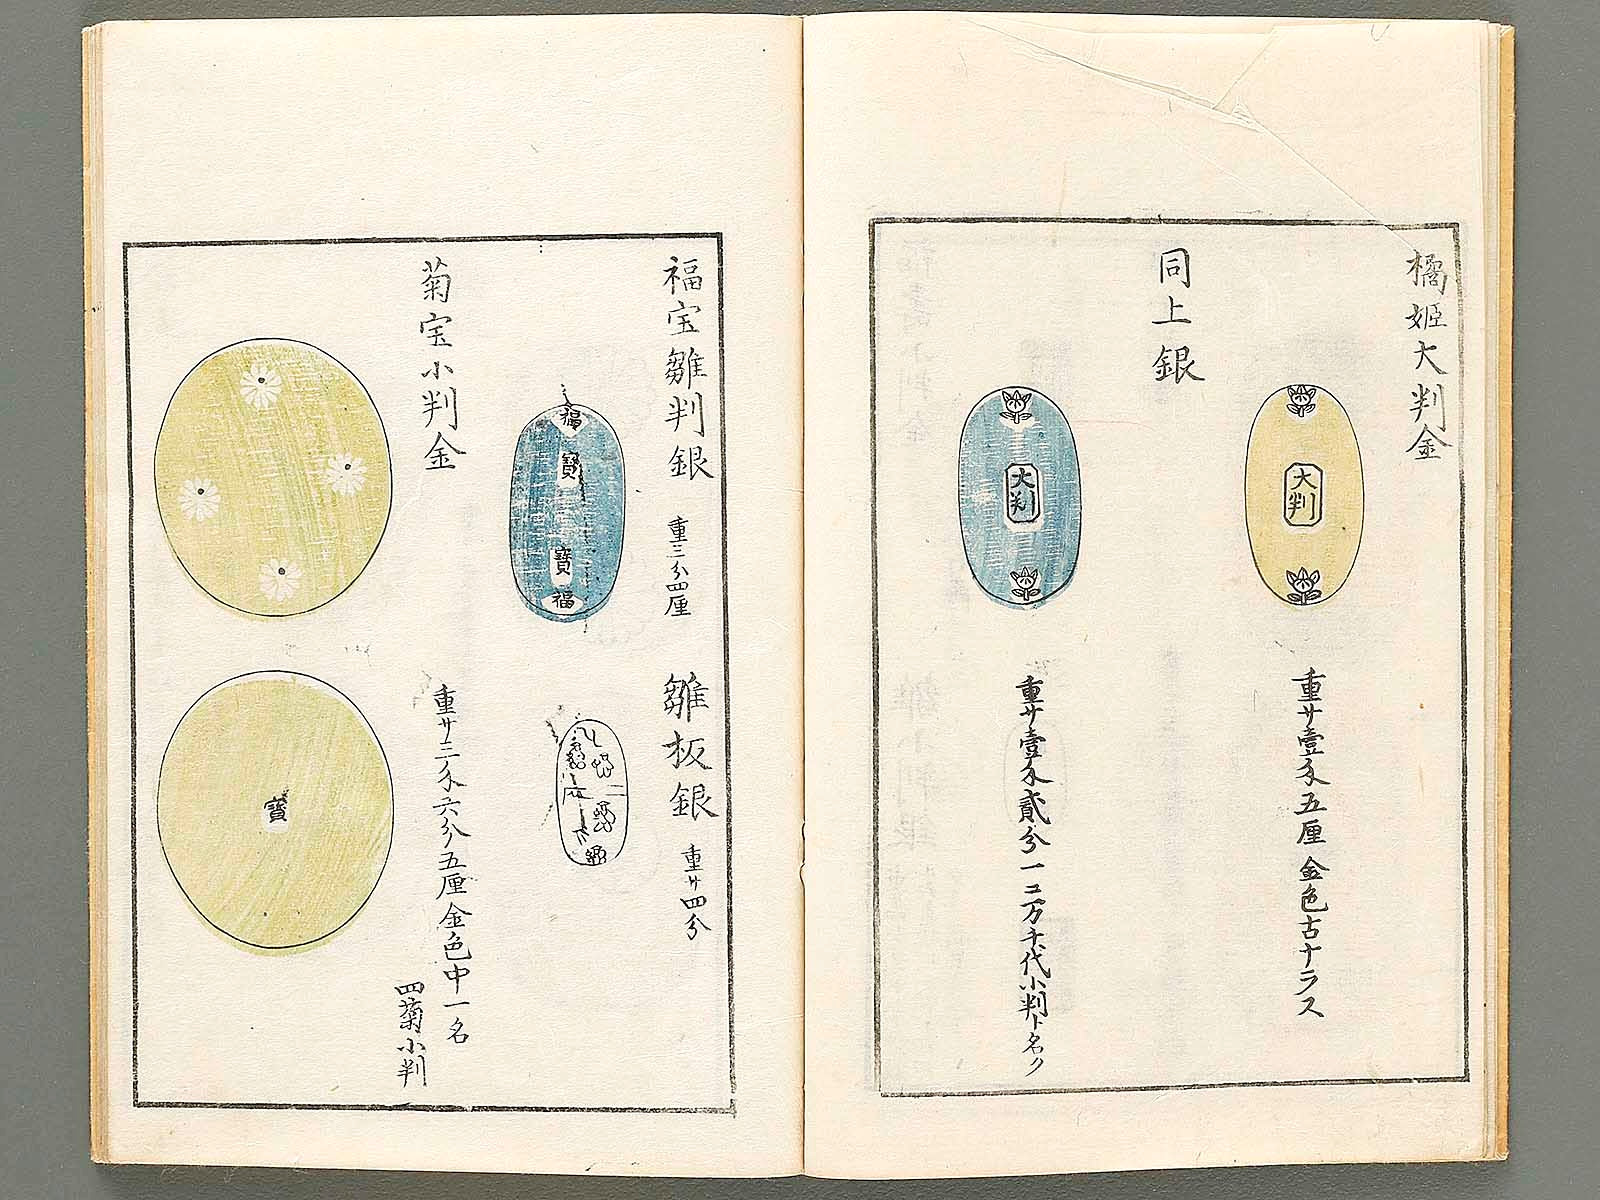 橘姫大判金
大判
重廿壹匁五厘金色古ナラス
同上銀
大判
重廿壹匁貳分一ニ万千代小判ト名ク
福宝雛判銀
重三分四厘
福
寳
寳
福
雛板銀
重廿四分
菊宝小判金
重廿三匁六分五厘金色中一名
四菊小判
寳